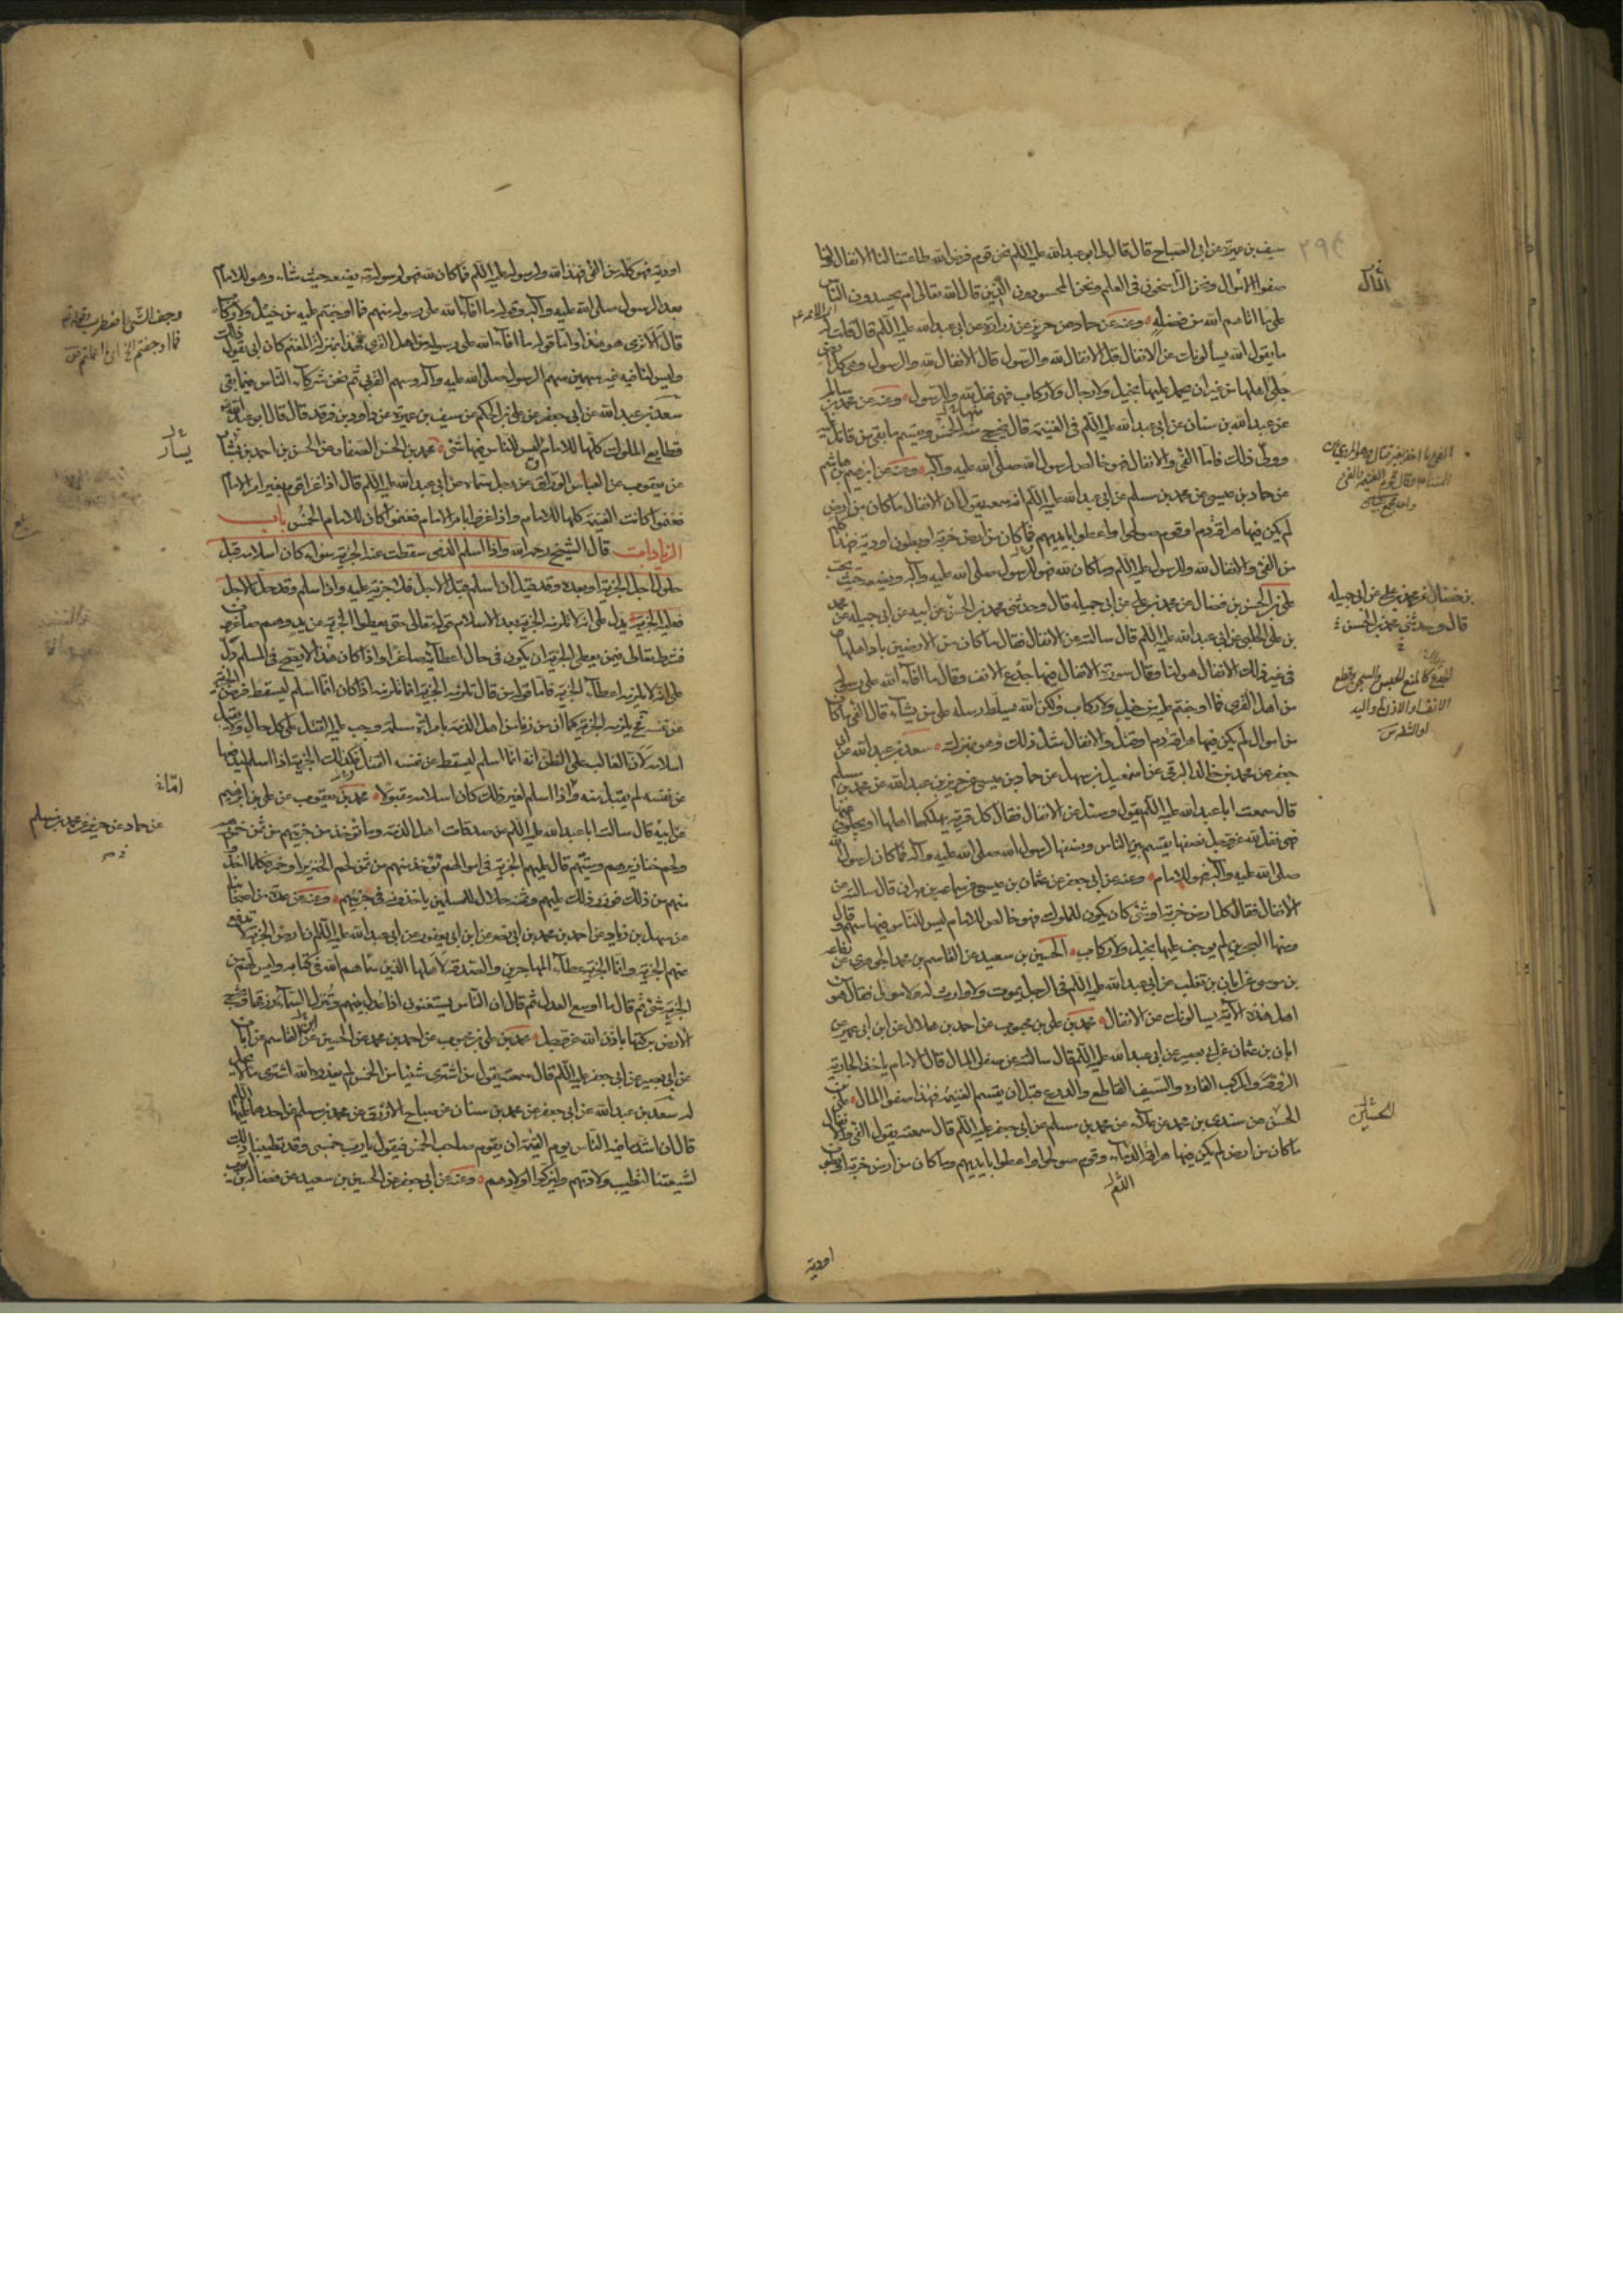 سيف بن عميرة عن ابي الصباح قال قال لي ابو عبد الله عليه السلم نحن قوم فرض الله طاعتنا لنا الانفال ولنا
صفوا الاموال ونحن الراسخون في العلم ونحن المحسودون الذين قال الله تعالى ام يحسدون الناس
على ما اتاهم الله من فضله وعنه عن حماد عن حريز عن زرارة عن ابي عبد الله عليه السلم قال قلت له
ما يقول الله يسألونك عن الانفال قل الانفال لله والرسول قال الانفال لله والرسول وهي كل ارض
جلى اهلها من غير ان يحمل عليها بخيل ولا رجال ولا ركاب فهي نفل لله وللرسول وعنه عن محمد بن سالم
عن عبد الله بن سنان عن ابي عبد الله عليه السلم في الغنيمة قال يخرج منه الخمس ويقسم ما بقي بين من قاتل عليه
وولى ذلك فاما الفئ والانفال فهو خالص لرسول الله صلى الله عليه وآله وعنه عن ابرهيم بن هاشم
عن حماد بن عيسى عن محمد بن مسلم عن ابي عبد الله عليه السلم انه سمعه يقول ان الانفال ما كان من ارض
لم يكن فيها هراقة دم او قوم صولحوا واعطوا بايديهم فما كان من ارض خربة او بطون اودية فهذا كله
من الفئ والانفال لله وللرسول عليه السلم وما كان لله فهو للرسول صلى الله عليه وآله ويضعه حيث يحب
علي بن الحسن بن فضال عن محمد بن علي عن ابي جميلة قال وحدثني محمد بن الحسن عن ابيه عن ابي جميلة عن محمد
بن علي الحلبي عن ابي عبد الله عليه السلم قال سالته عن الانفال فقال ما كان من الارضين باد اهلها
وفي غير ذلك الانفال هو لنا وقال سورة الانفال فيها جدع الانف وقال ما افاء الله على رسوله
من اهل القرى فما اوجفتم عليه من خيل ولا ركاب ولكن الله يسلط رسله على من يشاء قال الفئ ما كان
من اموال لم يكن فيها هراقة دم او قتل والانفال مثل ذلك وهو بمنزلته سعد بن عبد الله عن ابي
جعفر عن محمد بن خالد البرقي عن اسمعيل بن سهل عن حماد بن عيسى عن حريز بن عبد الله عن محمد بن مسلم
قال سمعت ابا عبد الله عليه السلم يقول وسئل عن الانفال فقال كل قرية يهلك اهلها او يجلون عنها
فهي نفل لله عز وجل نصفها يقسم بين الناس ونصفها لرسول الله صلى الله عليه وآله فما كان لرسول الله
صلى الله عليه وآله فهو للامام وعنه عن ابي جعفر عن عثمان بن عيسى عن سماعة بن مهران قال سالته عن
الانفال فقال كل ارض خربة او شئ كان يكون للملوك فهو خالص للامام ليس للناس فيها سهم قال
ومنها البحرين لم يوجف عليها بخيل ولا ركاب الحسين بن سعيد عن القاسم بن محمد الجوهري عن رفاعة
بن موسى عن ابان بن تغلب عن ابي عبد الله عليه السلم في الرجل يموت ولا وارث له ولا مولى فقال هو من
اهل هذه الآية يسألونك عن الانفال محمد بن علي بن محبوب عن احمد بن هلال عن ابن ابي عمير عن
ابان بن عثمان عن ابي بصير عن ابي عبد الله عليه السلم قال سالته عن صفو المال قال الامام ياخذ الجارية
الروقة والمركب الفاره والسيف القاطع والدرع قبل ان يقسم الغنيمة فهذا صفو المال علي بن
الحسن عن سندي بن محمد عن علاء عن محمد بن مسلم عن ابي جعفر عليه السلم قال سمعته يقول الفئ والانفال
ما كان من ارض لم يكن فيها هراقة الدماء وقوم صولحوا واعطوا بايديهم وما كان من ارض خربة او بطون
اودية
بن فضال عن محمد بن علي عن ابي جميلة
قال وحدثني محمد بن الحسن
اودية فهو كله من الفئ فهذا لله ولرسوله عليه السلم فما كان لله فهو لرسوله يضعه حيث شاء وهو للامام
بعد الرسول صلى الله عليه وآله وقوله ما افاء الله على رسوله منهم فما اوجفتم عليه من خيل ولا ركاب
قال الا ترى هو هذا واما قوله ما افاء الله على رسوله من اهل القرى فهذا بمنزلة المغنم كان ابي يقول ذلك
وليس لنا فيه غير سهمين سهم الرسول صلى الله عليه وآله وسهم القربى ثم نحن شركاء الناس فيما بقي
سعد بن عبد الله عن ابي جعفر عن علي بن الحكم عن سيف بن عميرة عن داود بن فرقد قال قال ابو عبد الله
قطايع الملوك كلها للامام وليس للناس فيها شئ محمد بن الحسن الصفار عن الحسن بن احمد بن بشار
عن يعقوب عن العباس الوراق عن رجل سماه عن ابي عبد الله عليه السلم قال اذا غزا قوم بغير امر الامام
فغنموا كانت الغنيمة كلها للامام واذا غزوا بامر الامام فغنموا كان للامام الخمس باب
الزيادات قال الشيخ رحمه الله واذا اسلم الذمي سقطت عنه الجزية سواء كان اسلامه قبل
حلول اجل الجزية او بعده وقد قيل ان اسلم قبل الاجل فلا جزية عليه وان اسلم وقد حل الاجل
فعليه الجزية يدل على انه لا تلزمه الجزية بعد الاسلام قوله تعالى حتى يعطوا الجزية عن يد وهم صاغرون
فشرط تعالى فيمن يعطي الجزية ان يكون في حال اعطائه صاغرا واذا كان هذا لا يصح في المسلم دل
على انه لا يلزمه اعطاء الجزية فاما قول من قال تلزمه الجزية انما تلزمه اذا كان انما اسلم ليسقط فرض الجزية
عن نفسه يلزمه الجزية كما ان من زنا من اهل الذمة بامراة مسلمة وجب عليه القتل على كل حال ولا يقبل
اسلامه لان الغالب على الظن انه انما اسلم ليسقط عن نفسه القتل فكذلك الجزية اذا اسلم ليدفعها
عن نفسه لم يقبل منه واذا اسلم لغير ذلك كان اسلامه مقبولا محمد بن يعقوب عن علي بن ابرهيم
عن ابيه قال سالت ابا عبد الله عليه السلم عن صدقات اهل الذمة وما تؤخذ من جزيتهم من ثمن خمورهم
ولحم خنازيرهم وميتتهم قال عليهم الجزية في اموالهم تؤخذ منهم من ثمن لحم الخنزير او خمر فكلما اخذوا
منهم من ذلك فوزر ذلك عليهم وثمنه حلال للمسلمين ياخذونه في جزيتهم وعنه عن عدة من اصحابنا
عن سهل بن زياد عن احمد بن محمد بن ابي نصر عن ابن ابي يعفور عن ابي عبد الله عليه السلم ان ارض الجزية لا ترفع
عنهم الجزية وانما الجزية عطاء المهاجرين والصدقة لاهلها الذين سماهم الله في كتابه وليس لهم من
الجزية شئ ثم قال ما اوسع العدل ثم قال ان الناس يستغنون اذا عدل بينهم وتنزل السماء رزقها وتخرج
الارض بركتها باذن الله عز وجل محمد بن علي بن محبوب عن احمد بن محمد عن الحسين عن القاسم عن ابان
عن ابي بصير عن ابي جعفر عليه السلم قال سمعته يقول من اشترى شيئا من الخمس لم يعذره الله اشترى ما لا يحل
له سعد بن عبد الله عن ابي جعفر عن محمد بن سنان عن صباح الازرق عن محمد بن مسلم عن احدهما عليهما السلم
قال ان اشد ما فيه الناس يوم القيمة ان يقوم صاحب الخمس فيقول يا رب خمسي وقد طيبنا ذلك
لشيعتنا لتطيب ولادتهم وليزكوا اولادهم وعنه عن ابي جعفر عن الحسين بن سعيد عن فضالة بن ايوب
يسار
عن حماد عن حريز عن محمد بن مسلم